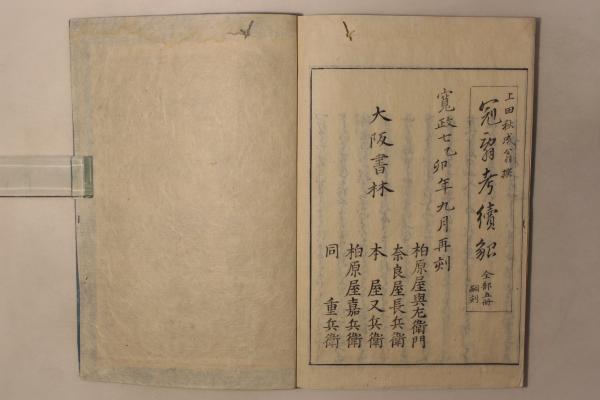 上田秋成翁撰
冠辭考續貂 全部五冊 嗣刻
寛政七乙卯年九月再刻
大阪書林
柏原屋與左衛門
奈良屋長兵衛
本屋又兵衛
柏原屋嘉兵衛
同 重兵衛